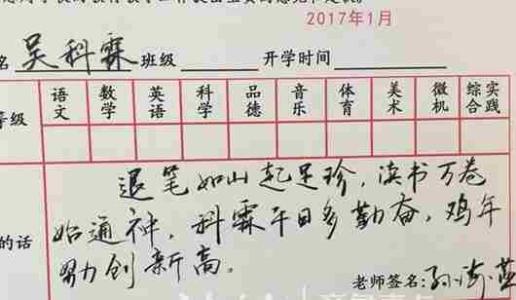 2017年1月
名 吴科霖 班级 开学时间
等级 语文 数学 英语 科学 品德 音乐 体育 美术 微机 综合实践
退笔如山起足珍，读书万卷
的话 始通神，科霖平日多勤奋，鸡年
努力创新高。
老师签名：孙海燕